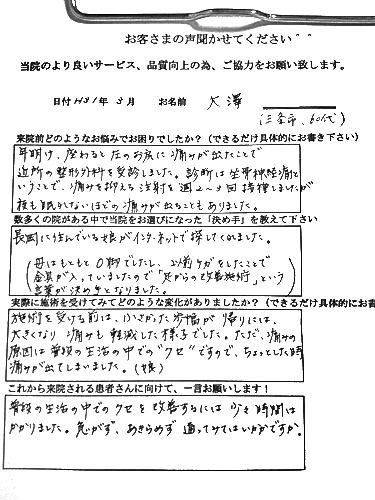 お客さまの声聞かせてください^^
当院のより良いサービス、品質向上の為、ご協力をお願い致します。
日付 H31年 3月 お名前 大澤
(三条市、60代)
来院前どのようなお悩みでお困りでしたか?(できるだけ具体的にお書き下さい)
年明け、座わると左のお尻に痛みが出たことで
近所の整形外科を受診しました。診断は坐骨神経痛と
いうことで、痛みを抑える注射を週2~3回接種しましたが
夜も眠れないほどの痛みが出ることもありました。
数多くの院がある中で当院をお選びになった「決め手」を教えて下さい
長岡に住んでいる娘がインターネットで探してくれました。
(母はもともとO脚でしたし、以前ケガをしたことで
金具が入っていましたので「足からの改善施術」という
言葉が決め手となりました。)
実際に施術を受けてみてどのような変化がありましたか?(できるだけ具体的にお書
施術を受ける前は、小さかった歩幅が帰りには、
大きくなり痛みも軽減した様子でした。ただ、痛みの
原因は普段の生活の中での"クセ"ですので、ちょっとした時
痛みが出てしまいました。(娘)
これから来院される患者さんに向けて、一言お願いします!
普段の生活の中でのクセを改善するには少々時間は
かかりました。急がず、あきらめず通ってみてはいかがですか。